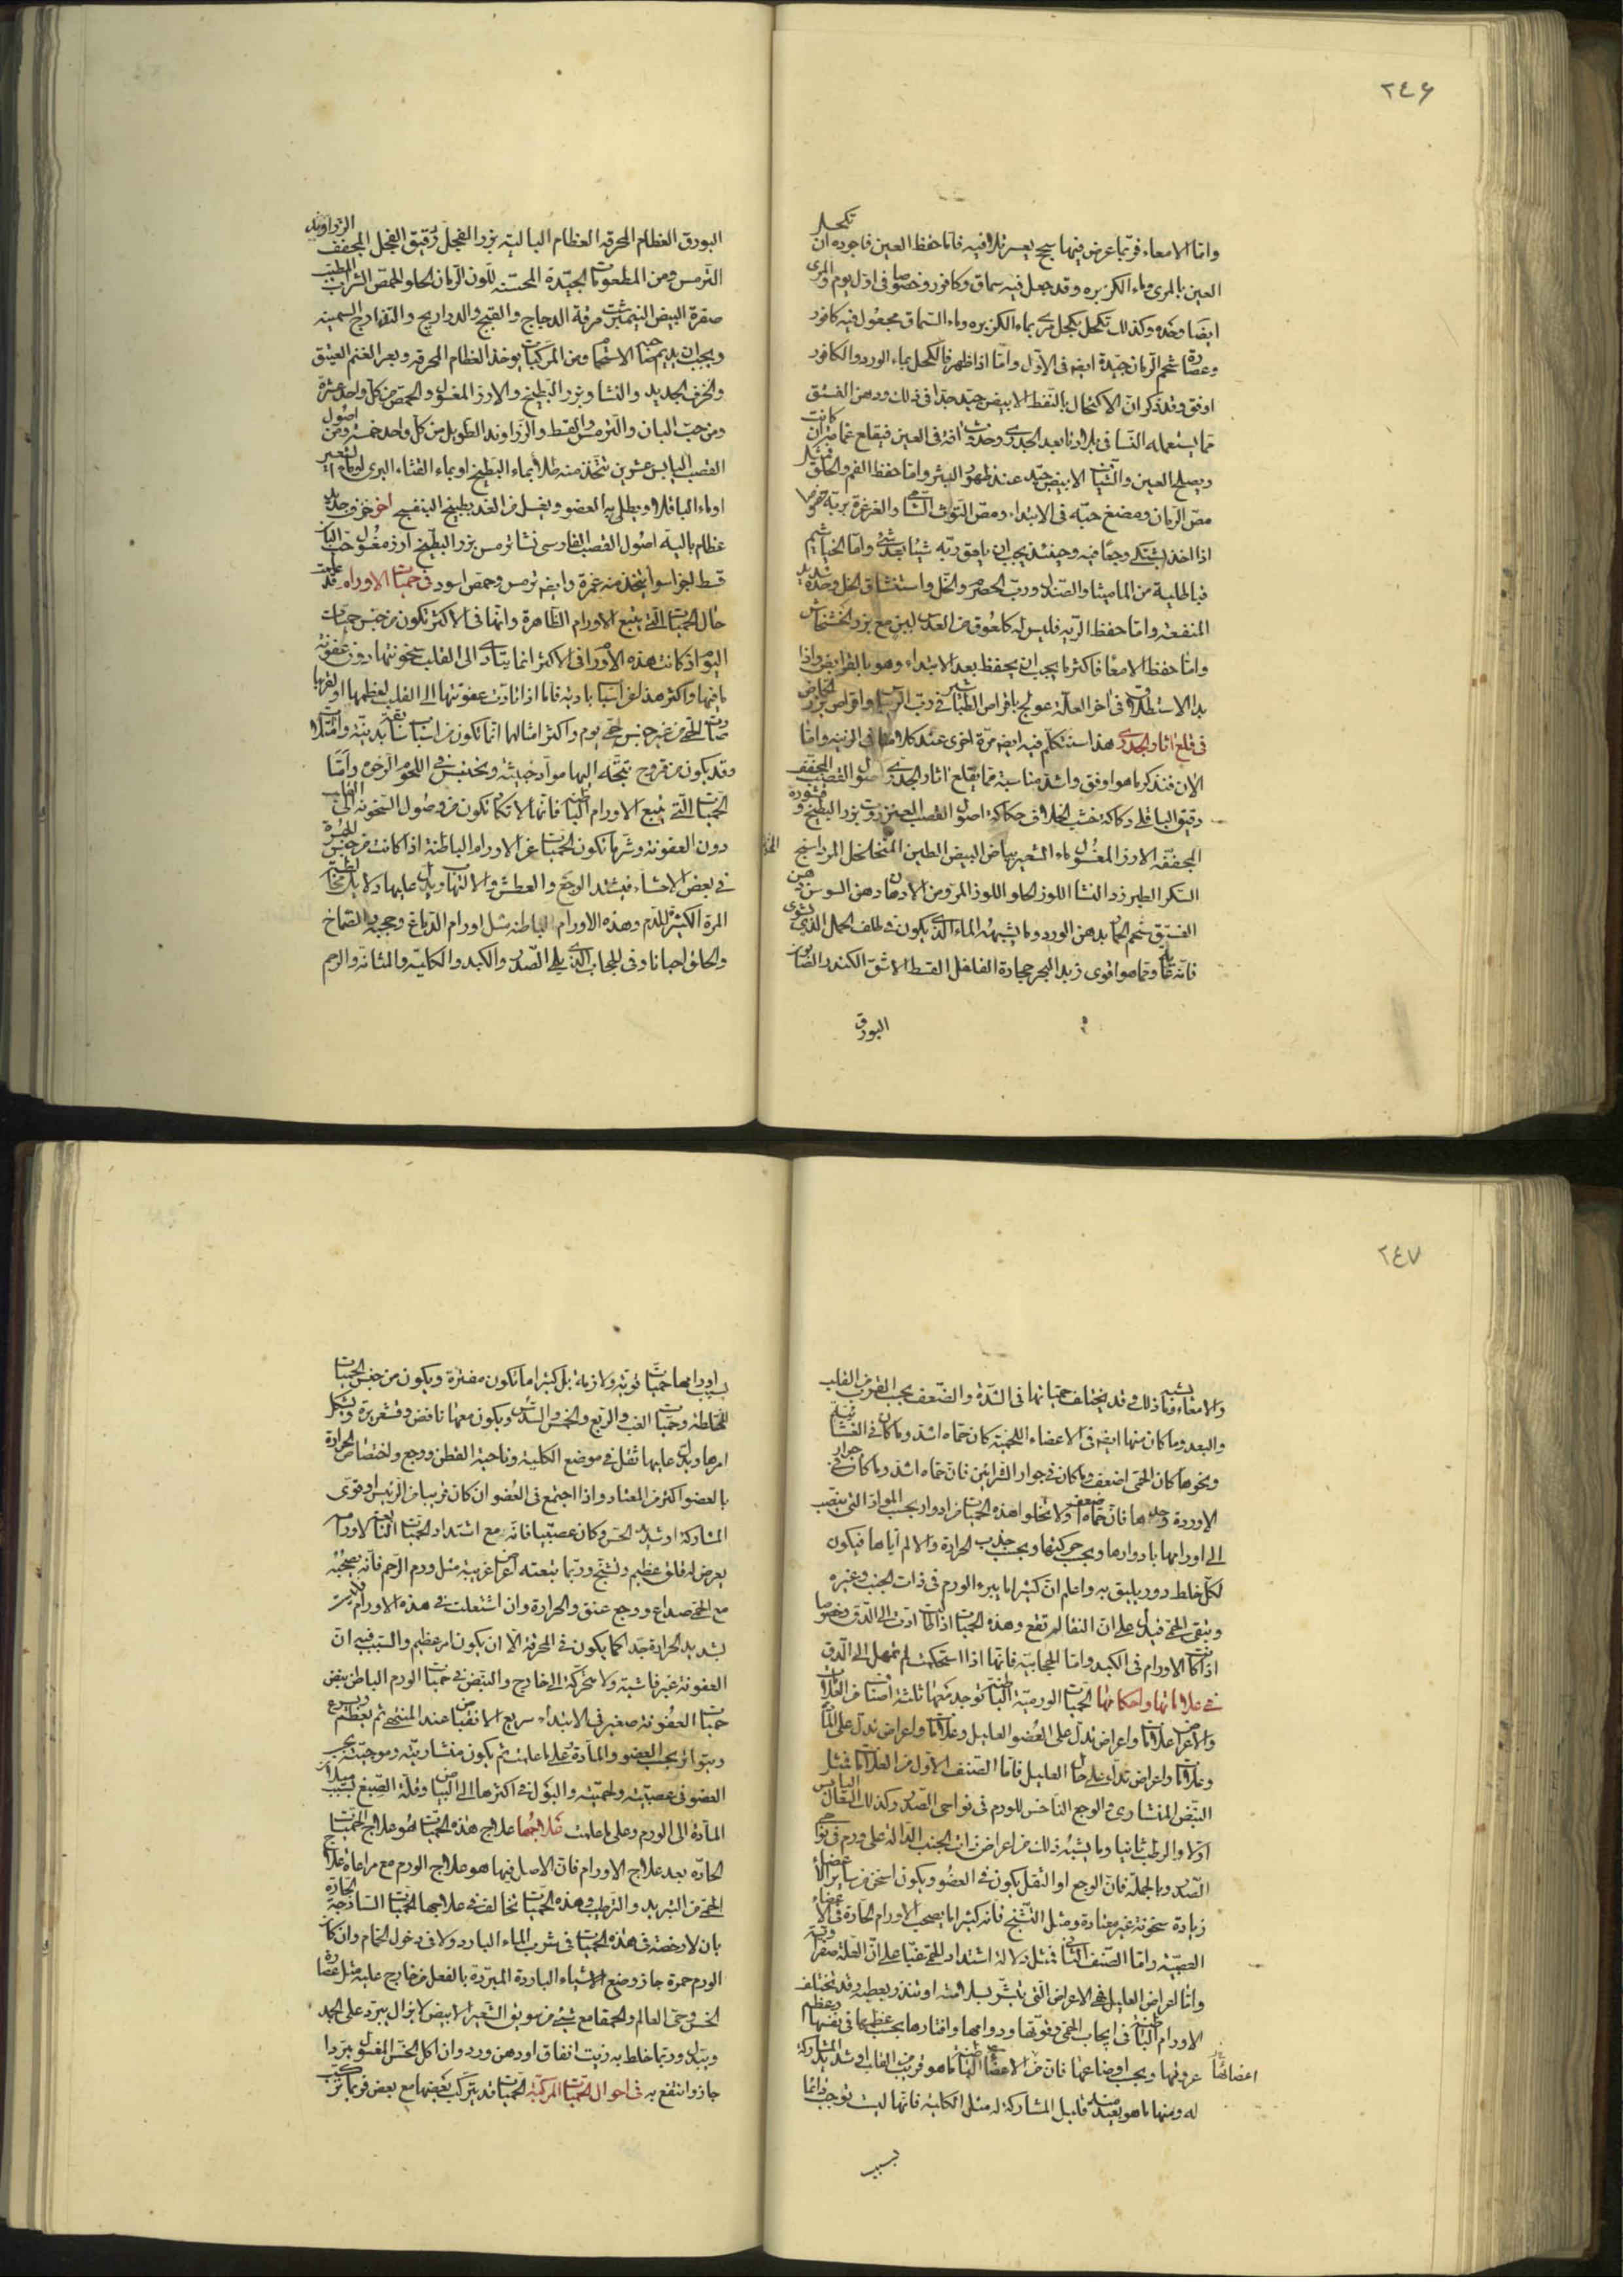 ٢٤٦
تكحل
وامّا الامعاء فربّما عرض فيها سحج يعسر تلافيه فامّا حفظ العين فاجوده ان
العين بالمرى وماء الكزبره وقد جعل فيه سماق وكافور وخصوصا فى اوّل يوم والمرى
ايضا وحده وكذلك تكحل بكحل مربى بماء الكزبره وماء السّماق مجعول فيه كافور
وعصارة شحم الرّمان جيّدة ايضا فى الاوّل وامّا اذا ظهر فالكحل بماء الورد والكافور
اوفق وقد ذكر انّ الاكتحال بالنّفط الابيض جيّد جدا فى ذلك ودهن الفستق
ممّا يستعمله النّسا فى بلادنا بعد الجدرى وحدوث افة فى العين فيقلع غمامة ان كانت
ويصلح العين والشّياف الابيض جيّد عند ظهور البثر وامّا حفظ الفم والحلق فمثل
مصّ الرّمان ومضغ حبّه فى الابتداء ومصّ التّوث الشّامى والغرغرة بربّه خصوصا
اذا اخذ يشتكى وجعا فيه وحينئذ يجب ان يلعق ربّه شيئا بعد شئ وامّا الخياشيم
فبالطلية من الماميثا والصّندل وربّ الحصرم والخلّ واستنشاق الخل وحده شديد
المنفعة وامّا حفظ الرّيه فليس له كلعوق من العدس لين مع بزر الخشخاش
وامّا حفظ الامعا فاكثر ما يجب ان يحفظ بعد الابتداء وهو بالقوابض واذا
بدا الاستطلاق فى آخر العلّة عولج باقراص الطّباشير فى ربّ الرّيباس واقراص بزر الحمّاض
فى قلع اثار الجدرى هذا سنتكلّم فيه ايضا مرّة اخرى عند كلامنا فى الزّينة وامّا
الان فنذكر ما هو اوفق واشدّ مناسبة فممّا يقلع اثار الجدرى اصول القصب المجفّف
دقيق الباقلى حكاكة خشب الخلاف حكاكة اصول القصب العنزروت بزر البطيخ وقشوره
المجفّفه الارز المغسول ماء الشعير بياض البيض الطين المتخلخل المرداسنج
السّكر الطبرزد النشا اللوز الحلو اللوز المرّ ومن الادهان دهن السوسن دهن
الفستق شحم الحمار بدهن الورد وما يشبهه الماء الّذى يكون فى ظلف الحمل الّذى يشوى
فانّه غاية وممّا هو اقوى زبد البحر حجارة الفلفل القسط الاشق الكندر الصّابون
البورق
البورق العظام المحرقه العظام الباليه بزر الفجل دقيق الفجل المجفف الزراوند
التّرمس ومن المطعومات الجيّدة المحسّنه للّون الرّمان الحلو الحمص الشراب الطيب
صفرة البيض النيمبرشت مرقة الدجاج والقبج والدراريج والتذارج السمينه
ويجب ان يديم صاحبه الاستحمام ومن المركبات يوخذ العظام المحرقه وبعر الغنم العتيق
والخزف الجديد والنشا وبزر البطيخ والارز المغسول والحمّص من كلّ واحد عشرة
ومن حبّ البان والترمس والقسط والزّراوند الطويل من كلّ واحد خمسة ومن اصول
القصب اليابس عشرين تتّخذ منه طلاء بماء البطيخ او بماء القثاء البرى او بماء الشعير
اوماء الباقلا ويطلى به العضو ويغسل من الغد بطبيخ البنفسج اخر خزف جديد
عظام باليه اصول القصب الفارسى نشا ترمس بزر البطيخ ارز مغسول حب البان
قسط اجزا سوا يتخذ منه غمرة وايضا ترمس وحمص اسود فى حميات الاورام قد علمت
حال الحميات الّتى يتبع الاورام الظاهرة وانّها فى الاكثر تكون من جنس حميات
اليوم اذ كانت هذه الاورام فى الاكثر انما يتادّى الى القلب سخونتها دون عفونة
ما فيها واكثر هذه لعن اسباب بادية فامّا اذا تادّت عفونتها الى القلب لعظمها او لقربها
صارت الحمّى من غير جنس حمّى يوم واكثر امثالها انّما تكون من اسباب سابقة بدنيّه وامتلاء
وقد يكون من قروح تتجّه اليها موادّ خبيثة ويحتبس فى اللحوم الرّخوة وامّا
الحميات الّتى يتبع الاورام الباطنة فانّها لا تكاد تكون من وصول السّخونة الى القلب
دون العفونة وشرّ ما تكون الحميات عن الاورام الباطنة اذا كانت من جنس الحمرة
فى بعض الاحشاء فيشتد الوجع والعطش والالتهاب ويدلّ عليها دلايل مخالطة
المرة الكثيرة للدّم وهذه الاورام الباطنه مثل اورام الدّماغ وحجبه والصّماخ
والحلق احيانا وفى الحجاب الّذى يلى الصّدر والكبد والكلية والمثانة والرحم
٢٤٧
والامعاء وما يشبه ذلك وقد يختلف حمّياتها فى الشدّة والضّعف بحسب القرب من القلب
والبعد وما كان منها ايضا فى الاعضاء اللحميّة كان حمّاه اشد وما كان فى الغشائية
ونحوها كان الحمّى اضعف وما كان فى جوار الشّرائين فان حمّاه اشد وما كان فى جوار
الاوردة وحدها فانّ حمّاه اضعف ولا تخلوا هذه الحمّيات من ادوار بحسب الموادّ الّتى تنصبّ
الى اورامها بادوارها وبحسب حركتها وبحسب جذب الحرارة والالم ايّاها فيكون
لكلّ خلط دور يليق به واعلم انّ كثيرا ما يبرء الورم فى ذات الجنب وغيره
ويبقى الحمّى فيدلّ على انّ النّقا لم تقع وهذه الحميات اذا طالت ادّت الى الدّق وخصوصا
اذا كانت الاورام فى الكبد وامّا الحجابيّه فانّها اذا استحكمت لم تمهل الى الدّق
فى علاماتها واحكامها الحميات الورميّة الباطنة توجد معها ثلثة اصناف من العلامات
والاعراض علامات واعراض تدلّ على العضو العليل وعلامات واعراض تدلّ على المادّة
وعلامات واعراض تدلّ على حال العليل فامّا الصّنف الاوّل من العلامات فمثل
النّبض المنشارى والوجع النّاخس للورم فى نواحى الصّدر وكذلك السّعال اليابس
اوّلا والرطب ثانيا وما يشبه ذلك من اعراض ذات الجنب الدّالة على ورم فى نواحى
الصّدر وبالجملة فانّ الوجع او الثقل يكون فى العضو ويكون اسخن من سائر الاعضاء
زيادة سخونة غير معتادة ومثل التّشنج فانّه كثيرا ما يصحب الاورام الحارّة فى الاعضاء
العصبيّه وامّا الصّنف الثانى فمثل دلالة اشتداد الحمّى غبّا على انّ العلّة صفراويّة
وامّا اعراض العليل فهى الاعراض الّتى تبشّر بسلامته او تنذر بعطبه وقد تختلف
الاورام الباطنية فى ايجاب الحمّى وقوّتها ودوامها واقتارها بحسب عظمها فى نفسها وعظم
عروقها وبحسب اوضاعها فانّ من الاعضاء الباطنية ما هو قريب من القلب او شديد المشاركة
اعضائها
له ومنها ما هو بعيد منه قليل المشاركة له مثل الكلية فانّها ليست توجب دائما
بسبب
بسبب اورامها حمّيات قويّة ولازمة بل كثيرا ما تكون مفترة ويكون من جنس الحميات
المختلطة وحمّيات الغب والربع والخمس والسّدس ويكون معها نافض وقشعريرة ويشكل
امرها ويدلّ عليها ثقل فى موضع الكلية وناحية القطن ووجع واختصاص الحرارة
بالعضو اكثر من المعتاد واذا اجتمع فى العضو ان كان قريبا من الرّئيس او قوى
المشاركة او شديد الحسّ وكان عصبيّا فانّه مع اشتداد الحمّيات التّابعة لاورامه
يعرض له قلق عظيم وتشنّج وربّما يتبعته اعراض غريبة مثل ورم الرّحم فانّه يصحبه
مع الحمّى صداع ووجع عنق والحرارة وان اشتعلت فى هذه الاورام فليس
بشديد الحرارة جدا كما يكون فى المحرقة الّا ان يكون امر عظيم والسّبب فيه انّ
العفونة غير فاشية ولا متحرّكة الى خارج والنّبض فى حميات الورم الباطن نبض
حميات العفونة صغير فى الابتداء سريع الانقباض عند المنتهى ثم يعظم ويسرع
ويتواتر بحسب العضو والمادّة على ما علمت ثم يكون منشاريّته وموجيّته بحسب
العضو فى عصبيّته ولحميّته والبول فى اكثرها الى البياض وقلّة الصّبغ بسبب ميلان
المادّة الى الورم وعلى ما علمت علاجها علاج هذه الحميات هو علاج الحميات
الحادّه بعد علاج الاورام فانّ الاصل فيها هو علاج الورم مع مراعاة علاج
الحمّى من التبريد والترطيب وهذه الحميات تخالف فى علاجها الحميات السّاذجة الحادّة
بان لا رخصة فى هذه الحميات فى شرب الماء البارد ولا فى دخول الحمّام وان كان
الورم حمرة جاز وضع الاشياء الباردة المبرّدة بالفعل من خارج عليه مثل عصارة
الخسّ وحىّ العالم والحمقا مع شئ من سويق الشّعير الابيض لا يزال يبرّد على الجمد
ويبدّل وربّما خلط به زيت انفاق او دهن ورد وان اكل الخسّ المغسول مبرّدا
جاز وانتفع به فى احوال الحميات المركّبة الحميات قد يتركّب بعضها مع بعض فربّما تركّب